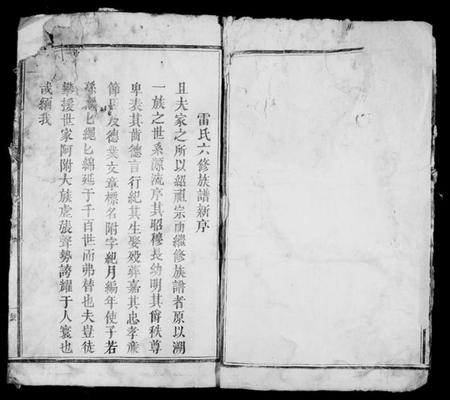 雷氏六修族譜新序
且夫家之所以紹祖宗而繼修族譜者原以溯
一族之世系源流序其昭穆長幼明其爵秩尊
卑表其齒德言行紀其生娶歿葬嘉其忠孝廉
節其及德業文章標名附字紀月編年使子若
孫繩匕繼匕綿延于千百世而弗替也夫豈徒
攀援世家阿附大族虛張聲勢誇耀于人寰也
哉顧我